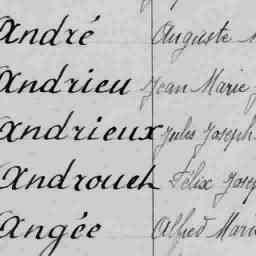 André Auguste
Andrieu Jean Marie
Andrieux Jules Joseph
Androuet Félix Josep
Angée Alfred Marie